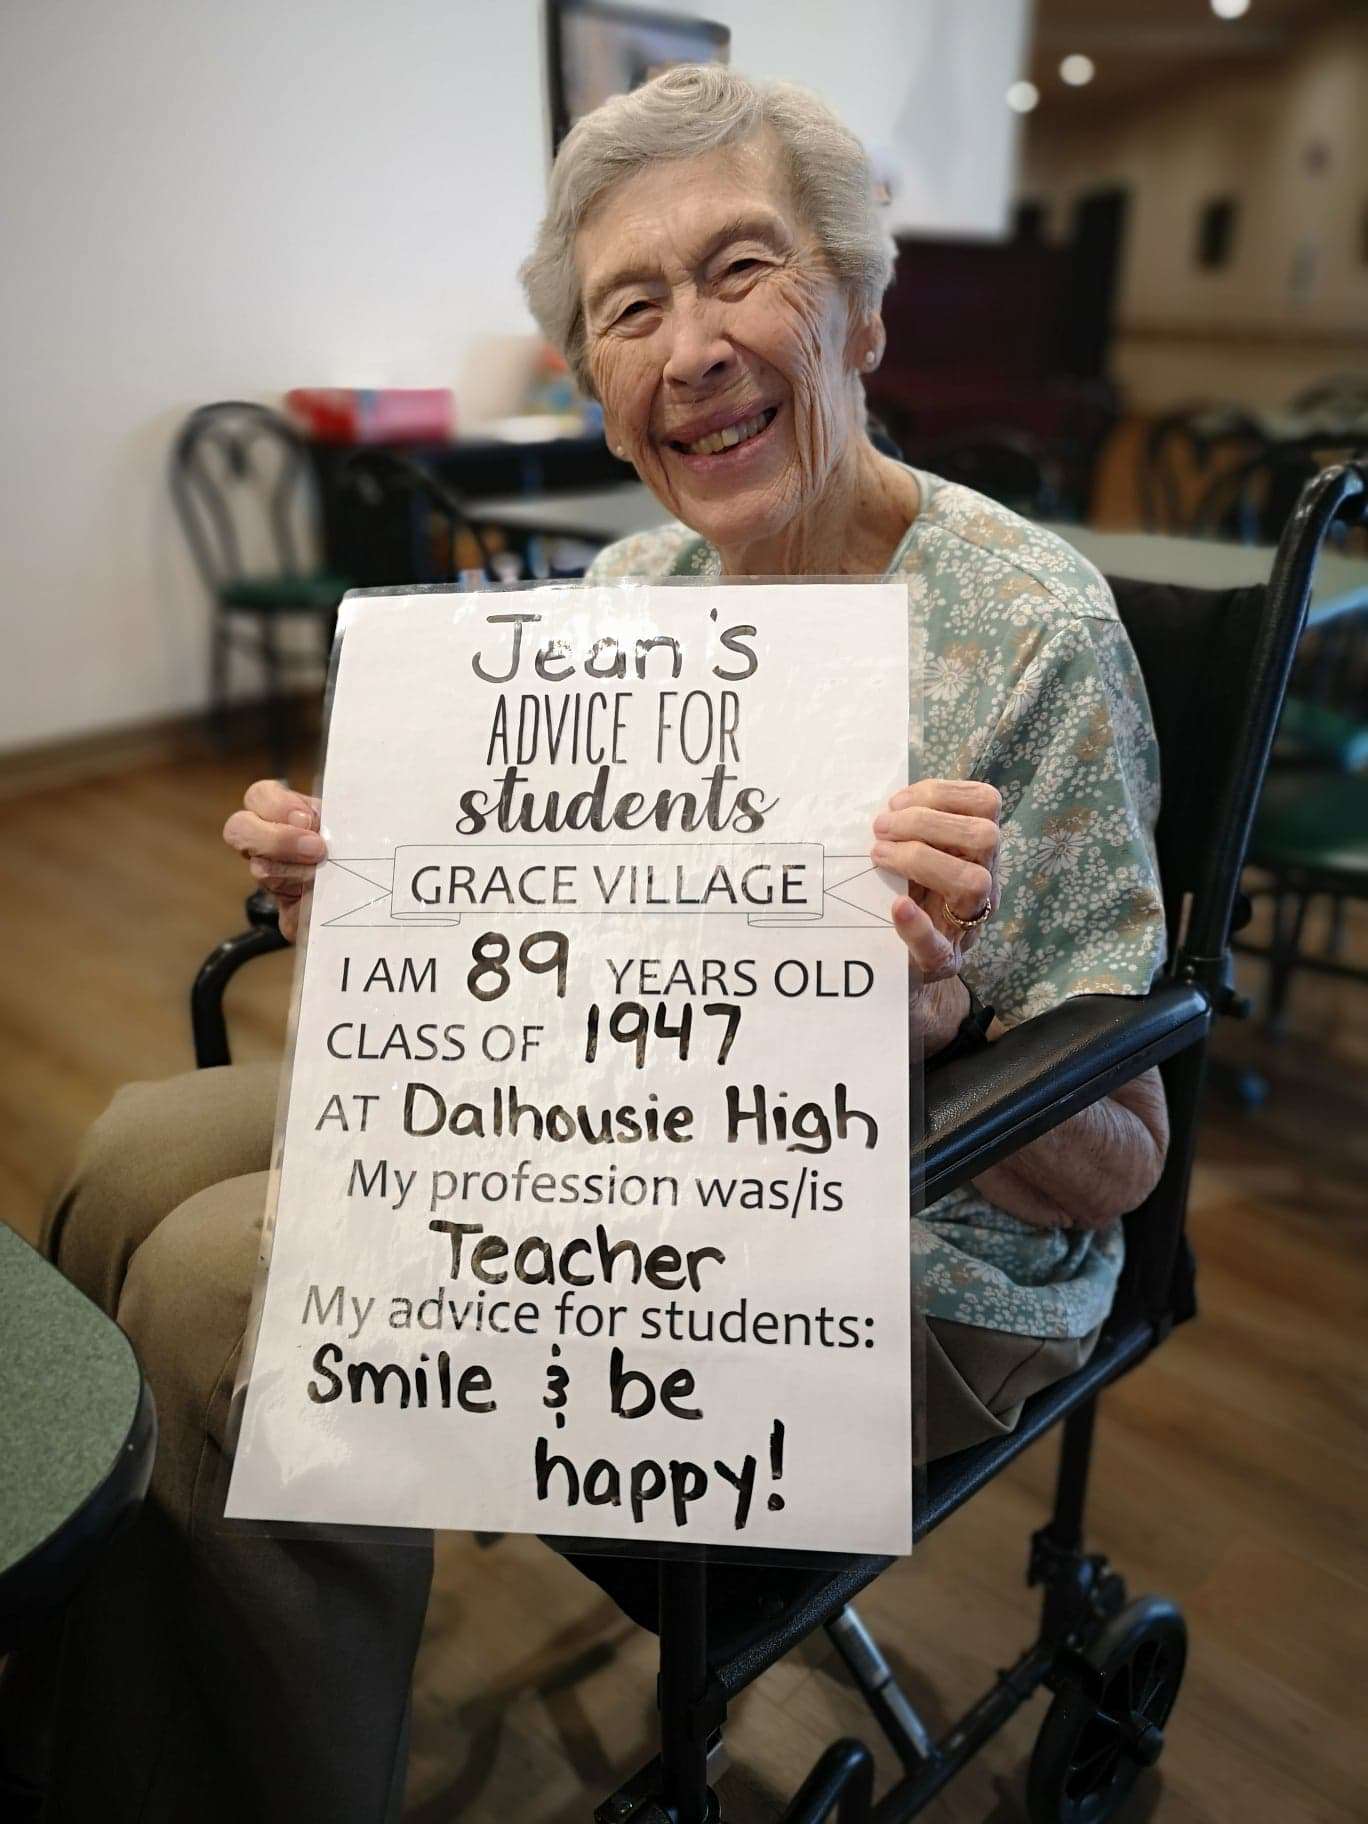 Jean's
ADVICE FOR
students
GRACE VILLAGE
I AM 89 YEARS OLD
CLASS OF 1947
AT Dalhousie High
My profession was/is
Teacher
My advice for students:
Smile & be
happy!